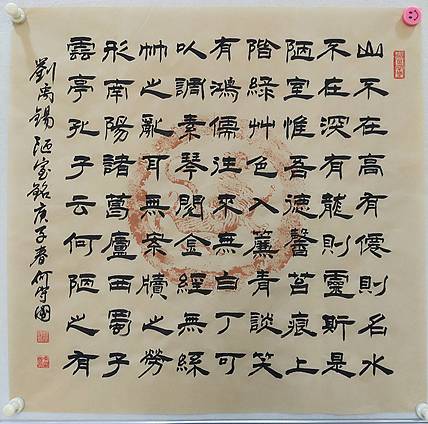 山不在高有僊則名水
不在深有龍則靈斯是
陋室惟吾德馨苔痕上
階綠艸色入簾青談笑
有鴻儒往來無白丁可
以調素琴閱金經無絲
竹之亂耳無案牘之勞
形南陽諸葛廬西蜀子
雲亭孔子云何陋之有
劉禹錫陋室銘庚子春何國